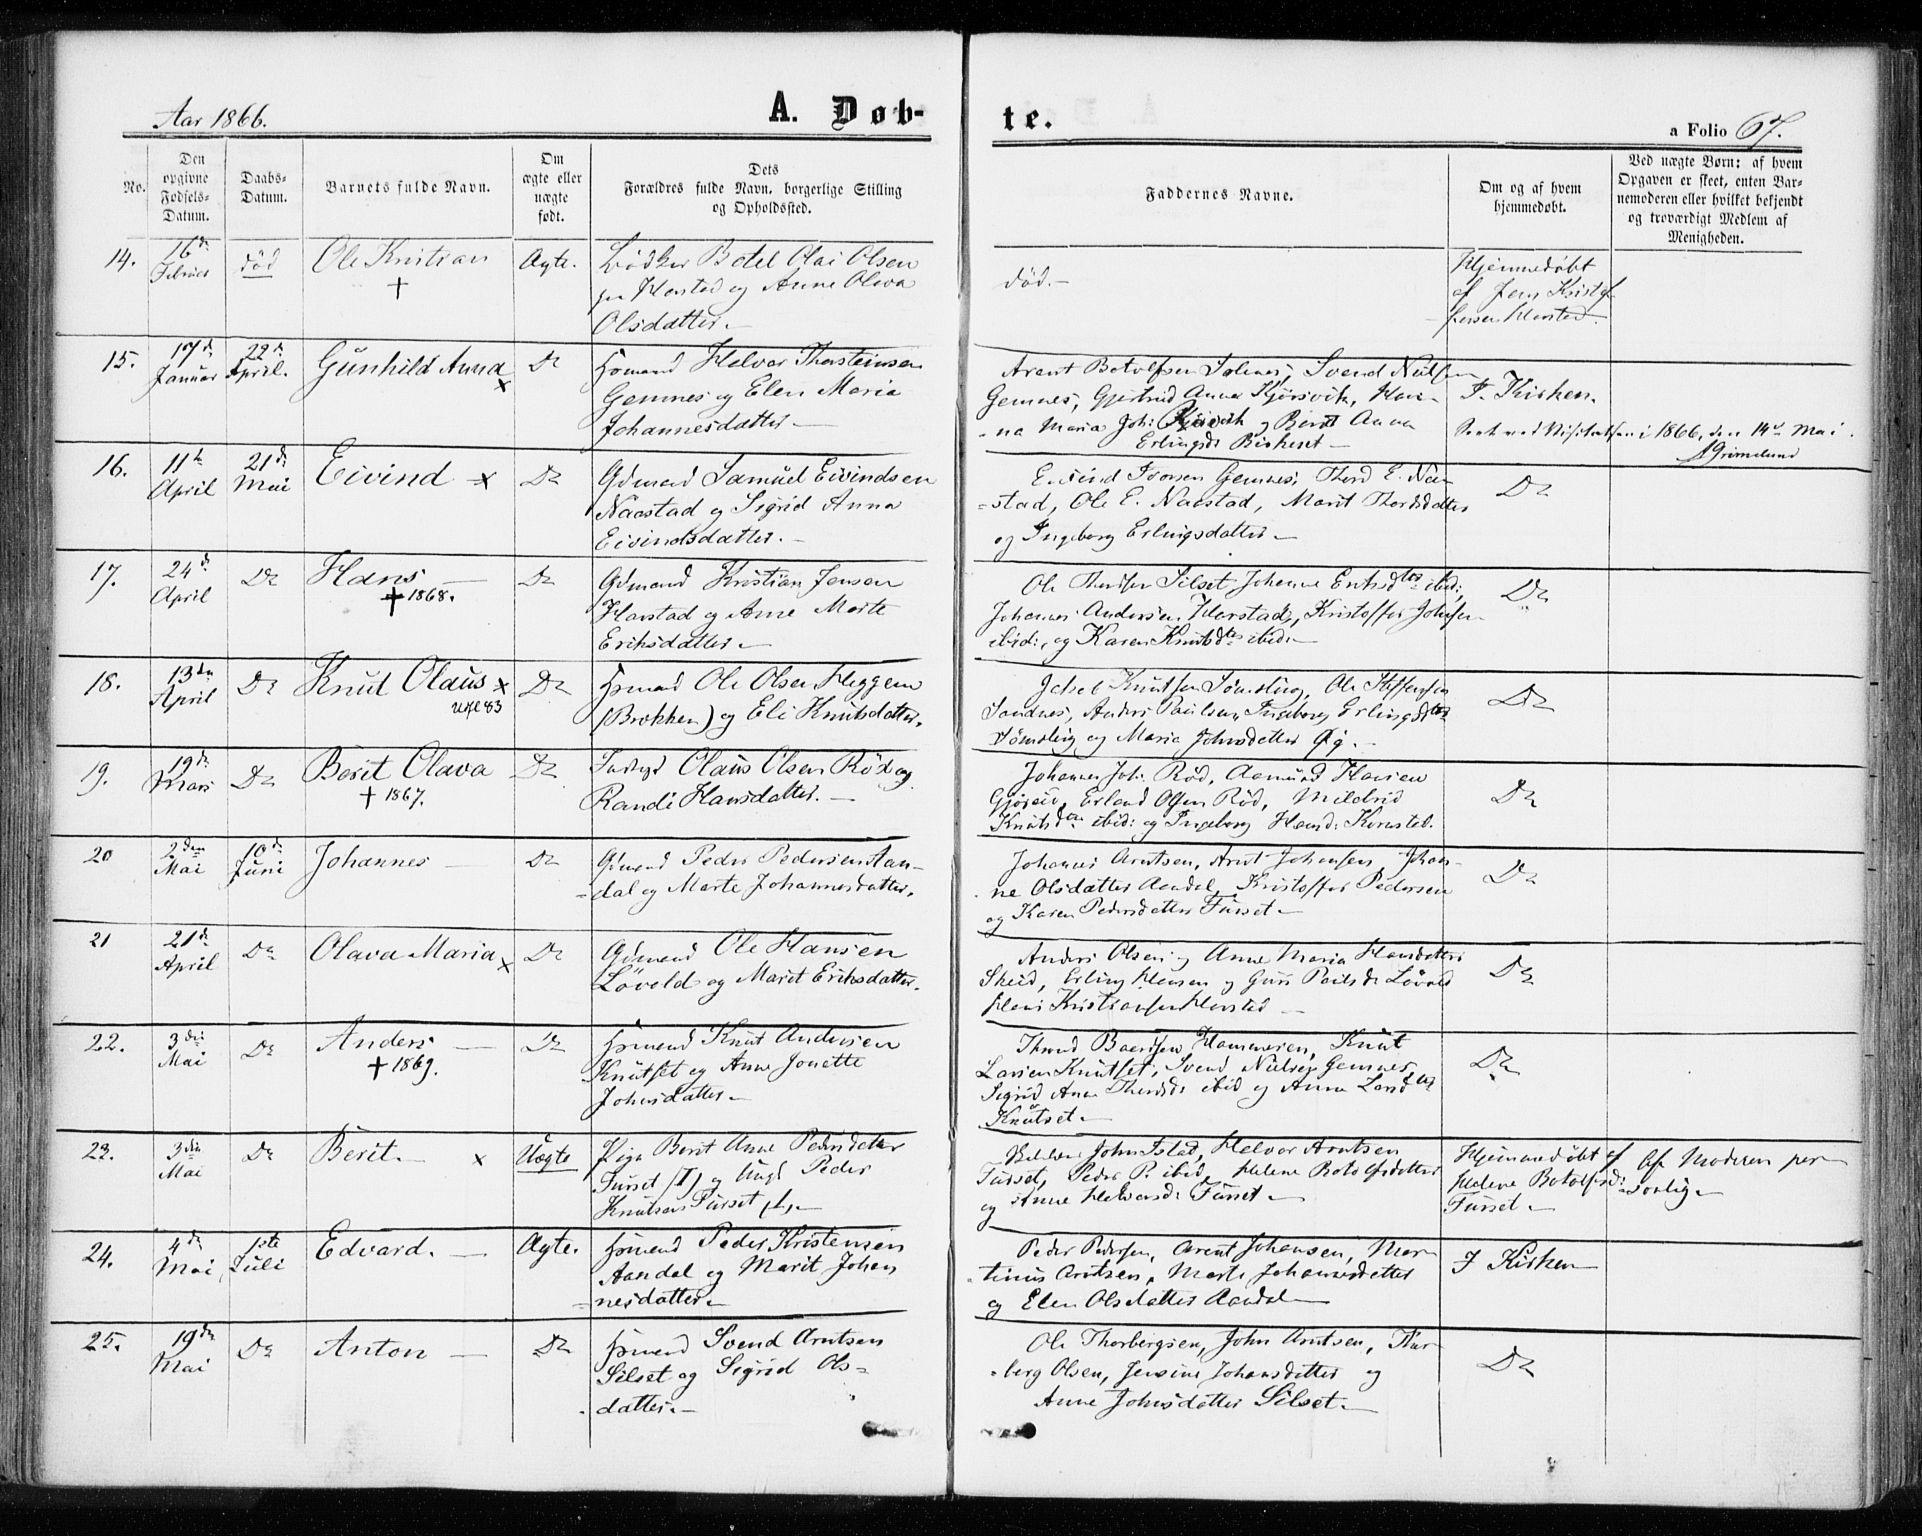 Aar 1866.
A. Døb-
te.
a Folio 67.
No.
Den opgivne Fødsels-Datum.
Daabs-Datum.
Barnets fulde Navn.
Om ægte eller uægte født.
Dets Forældres fulde Navn, borgerlige Stilling og Opholdssted.
Faddernes Navne.
Om og af hvem hjemmedøbt.
Ved uægte Børn: af hvem Opgaven er skeet, enten Barnemoderen eller hvilket bekjendt og troværdigt Medlem af Menigheden.
14.
16de Februar
død
Ole Kristian
†
Ægte.
Olai Olsen
Harstad og Anne Olava
Olsdatter.
død.
Hjemmedøbt
af Jens Kristof
fersen Harstad.
15.
17de Januar
22de April.
Gunhild Anna x
Do
Hsmand Halvor Thorsteinsen
Gemnes og Elen Maria
Johannesdatter
Arent Botolfsen, Svend Nielsen
Gemnes, Gjertrud Anna Kjørsvik, Han-
na Maria Joh: og Berit Anna
Erlingsd:
I Kirken.
Seet ved Visitatsen i 1866, den 14de Mai.
Grimelund
16.
11te April
21de Mai
Eivind x
Do
Gdmand Samuel Eivindsen
Naastad og Sigrid Anna
Eivindsdatter.
Eivind Iversen Gemnes, Thord E. Naa-
stad, Ole E. Naastad, Marit Thordsdatter
og Ingeborg Erlingsdatter
Do
17.
24de April
Do
Hans
† 1868.
Do
Gdmand Kristian Jensen
Harstad og Anne Marte
Eriksdatter
Ole Thordsen Silset, Johanne Eriksdtr ibid;
Johannes Andersen Harstad, Kristoffer Johnsen
ibid:, og Karen Knutsdtr ibid:
Do
18.
13de April
Do
Knut Olaus x
83
Do
Hsmand Ole Olsen Heggem
(Brekken) og Eli Knutsdatter.
Knutsen, Ole Steffensen
Sandnes, Anders Paulsen, Ingeborg Erlingsdtr
og Maria Johnsdatter
Do
19.
19de Mars
Do
Berit Olava
† 1867.
Do
Olaus Olsen Röd og
Randi Hansdatter.
Johannes Joh: Röd, Aamund Hansen
Erland Olsen Röd, Mildrid
Knutsd. ibid: og Ingeborg Hansd:
Do
20
2den Mai
10de Juni
Johannes
Do
Gdmand Peder Pedersen Aan-
dal og Marte Johannesdatter.
Johannes Arntsen, Arnt Johansen, Johan-
ne Olsdatter Aandal, Kristoffer Pedersen
og Karen Pedersdatter Furset
Do
21
21de April
Do
Olava Maria x
Do
Gdmand Ole Hansen
Lövold og Marit Eriksdatter.
Anders Olsen og Anne Maria Hansdatter
Skeid, Erling Hansen og Guri Paulsd: Lövold
Hans Kristiansen Harstad
Do
22.
3die Mai
Do
Anders
† 1869.
Do
Hsmand Knut Andersen
Knutset og Anne Jonette
Johnsdatter
Thord Baardsen, Knut
Larsen Knutset, Svend Nielsen Gemnes,
Sigrid Anne Thordsd: ibid og Anne Larsdtr
Knutset
Do
23.
3die Mai
Do
Berit x
Uægte
Pige Berit Anne Pedersdatter
Furset (1) og Ungk Peder
Knutsen Furset (1)
John Istad, Halvor Arntsen
Furset, Peder P. ibid, Helene Botolfsdatter
og Anne Halvorsd: Furset
Hjemmedøbt af
Helene Botolfsd:
Furset
Af Moderen per-
sonlig
24.
4de Mai
1ste Juli
Edvard.
Ægte.
Hsmand Peder Kristensen
Aandal og Marit Johan
nesdatter
Peder Pedersen, Arent Johansen, Mar-
tinus Arntsen, Marte Johannesdatter
og Elen Olsdatter Aandal
I Kirken
25.
19de Mai
Do
Anton
Do
Hsmand Svend Arntsen
Silset og Sigrid Ols-
datter.
Ole Thorbergsen, John Arntsen, Thor-
berg Olsen, Jensine Johansdatter og
Anne Johnsdatter Silset.
Do